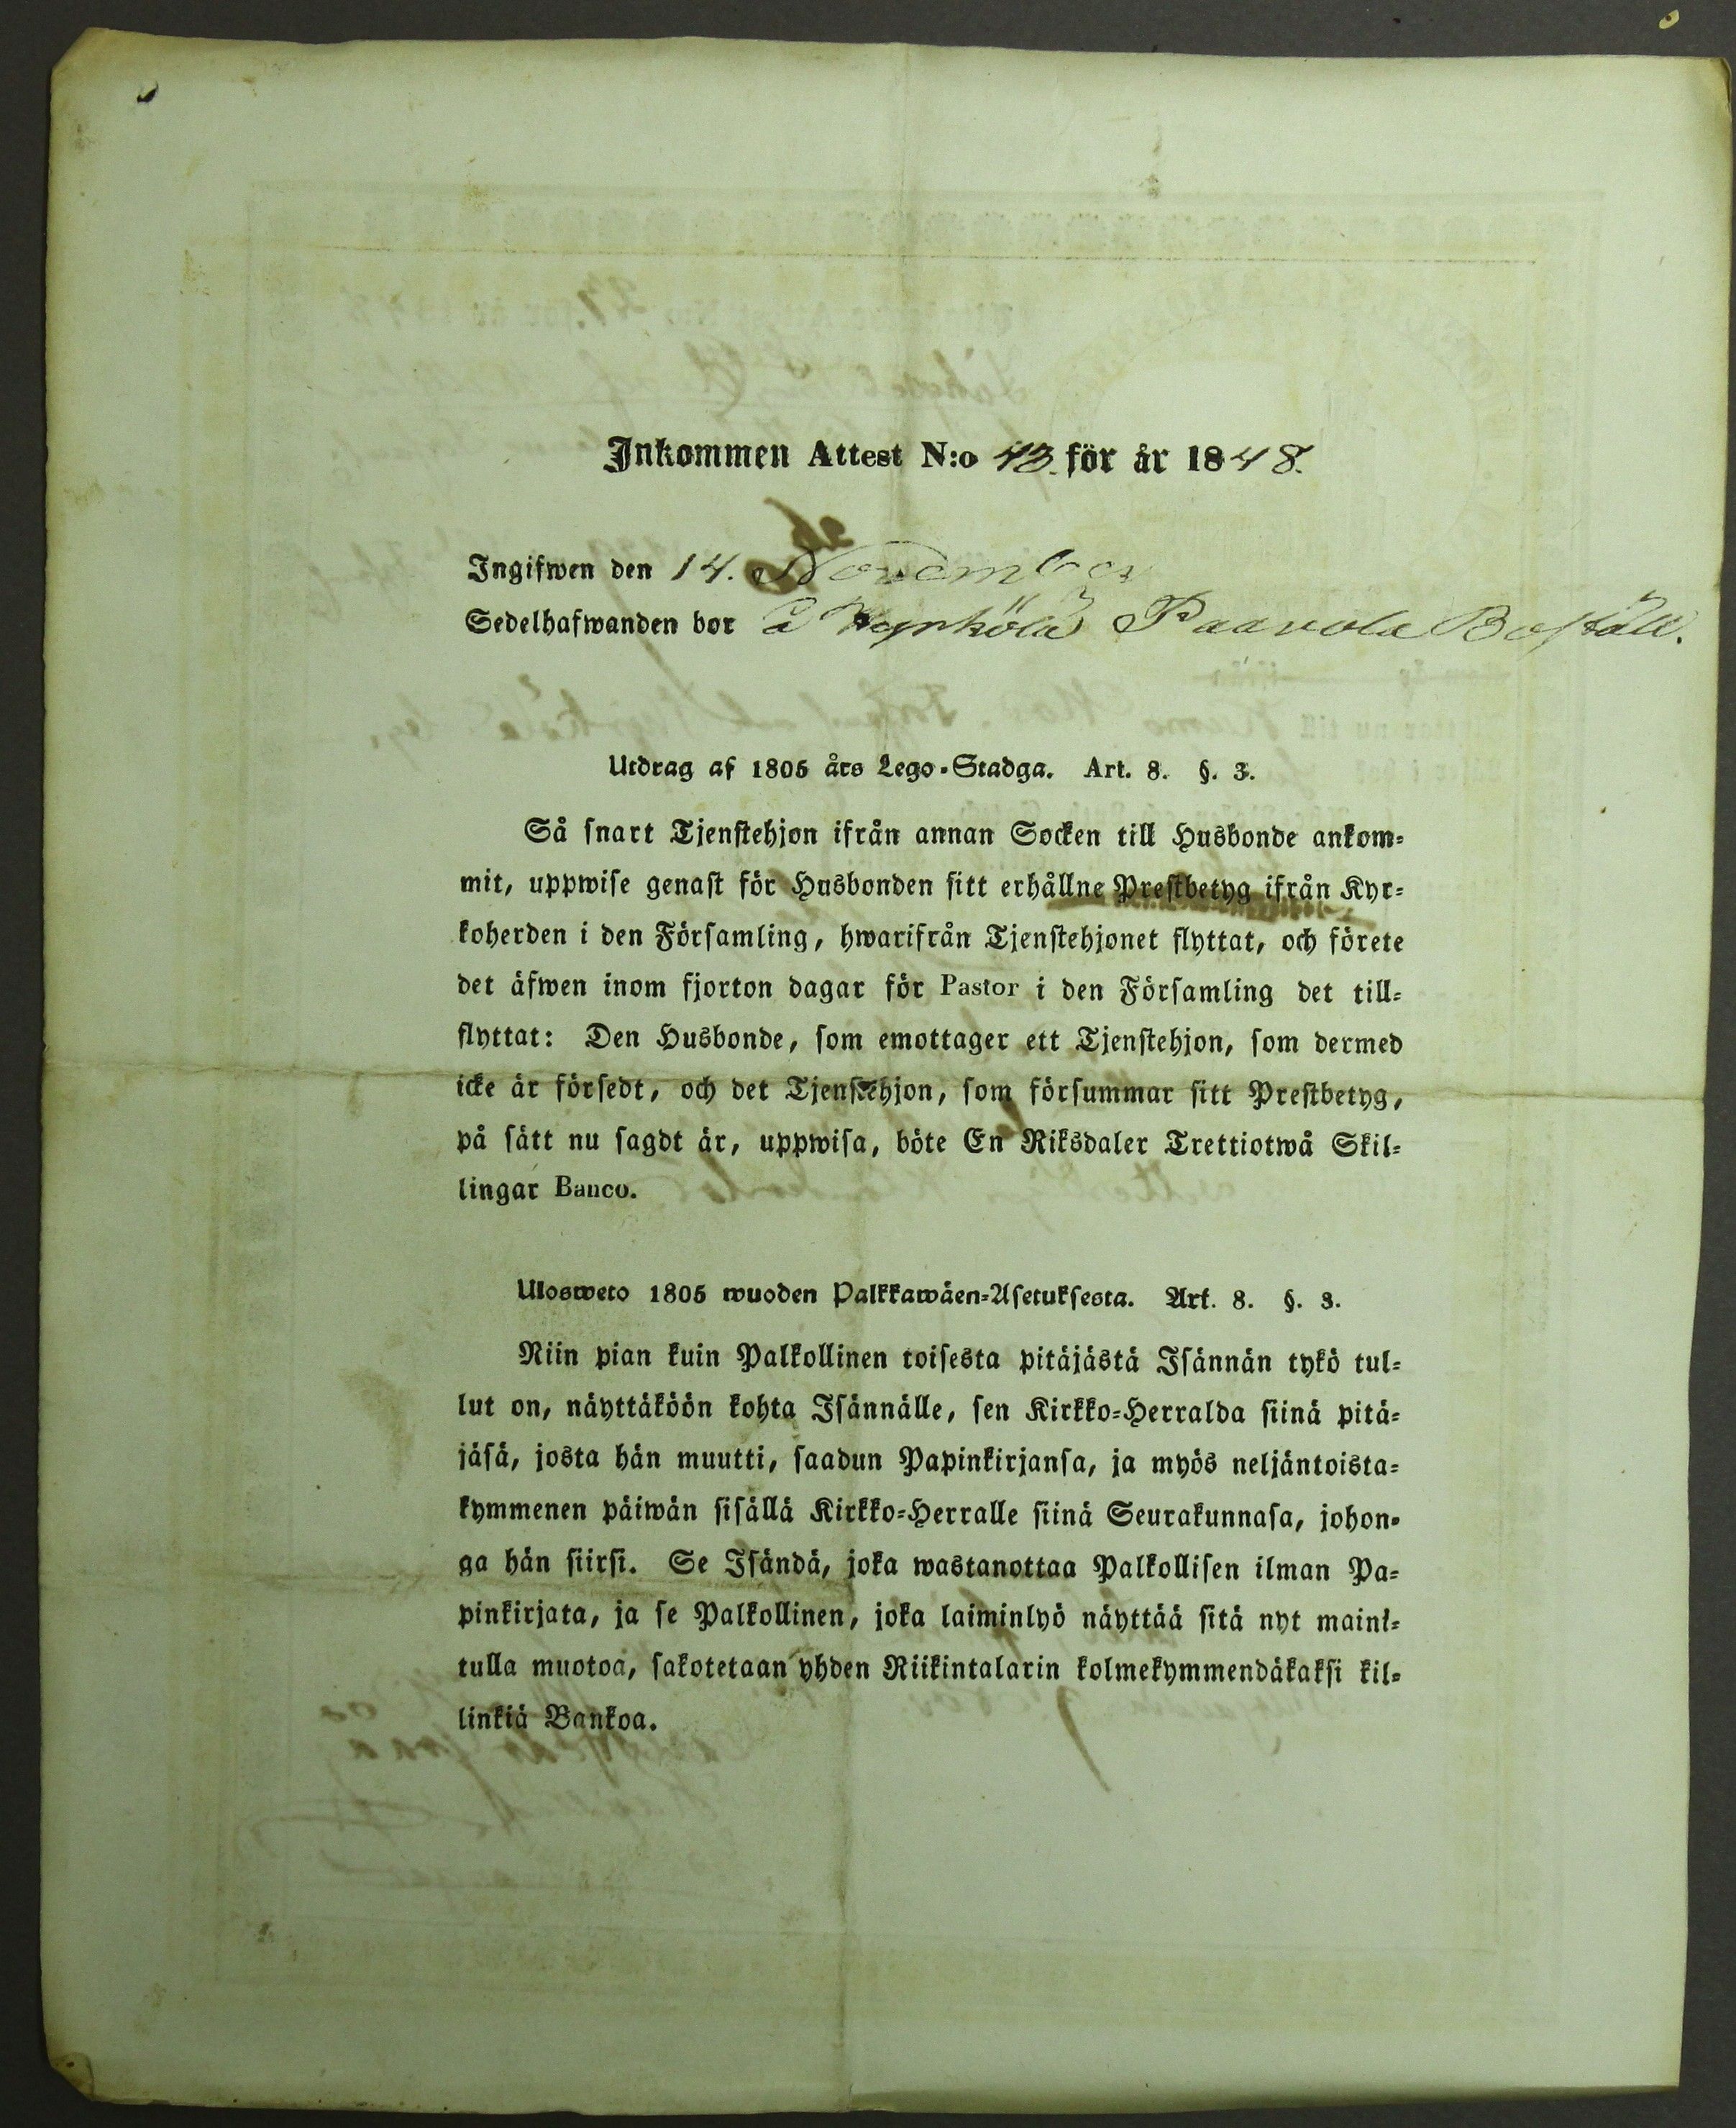 Inkommen Attest N:o 43. för år 1848.
Ingifwen den 14. November
Sedelhafwanden bor å Kyrkölä Paavola Boställ.
Utdrag af 1805 års Lego-Stadga. Art. 8. §. 3.
Så snart Tjenstehjon ifrån annan Socken till Husbonde ankom-
mit, uppwise genast för Husbonden sitt erhållne Prestbetyg ifrån Kyr-
koherden i den Församling, hwarifrån Tjenstehjonet flyttat, och förete
det äfwen inom fjorton dagar för Pastor i den Församling det till-
flyttat: Den Husbonde, som emottager ett Tjenstehjon, som dermed
icke är försedt, och det Tjenstehjon, som försummar sitt Prestbetyg,
på sätt nu sagdt är, uppwisa, böte En Riksdaler Trettiotwå Skil-
lingar Banco.
Ulosweto 1805 wuoden Palkkawäen-Asetuksesta. Art. 8. §. 3.
Niin pian kuin Palkollinen toisesta pitäjästä Isännän tykö tul-
lut on, näyttäköön kohta Isännälle, sen Kirkko-Herralda siinä pitä-
jäsä, josta hän muutti, saadun Papinkirjansa, ja myös neljäntoista-
kymmenen päiwän sisällä Kirkko-Herralle siinä Seurakunnasa, johon-
ga hän siirsi. Se Isändä, joka wastanottaa Palkollisen ilman Pa-
pinkirjata, ja se Palkollinen, joka laiminlyö näyttää sitä nyt maini-
tulla muotoa, sakotetaan yhden Riikintalarin kolmekymmendäkaksi kil-
linkiä Bankoa.